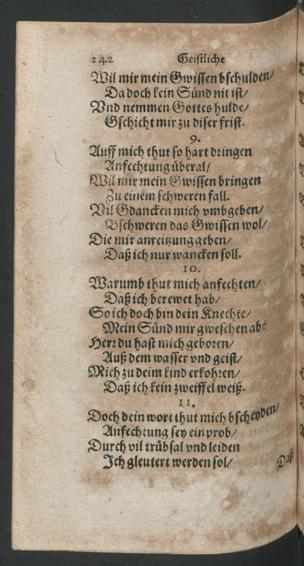 142 Geistliche
Wil mir mein Gwissen bschulden/
Da doch kein Sünd nit ist/
Vnd nemmen Gottes hulde/
Gschicht mir zu diser frist.
9.
Auff mich thut so hart dringen
Anfechtung überal/
Wil mir mein Gwissen bringen
Zu einem schweren fall.
Vil Gdancken mich vmbgeben/
Bschweren das Gwissen wol/
Die mir anreitzung geben/
Daß ich nur wancken soll.
10.
Warumb thut mich anfechten/
Daß ich berewet hab/
So ich doch bin dein Knechte/
Mein Sünd mir gweschen ab?
Herr du hast mich geboren/
Auß dem wasser vnd geist/
Mich zu deim kind erkohren/
Daß ich kein zweiffel weiß.
11.
Doch dein wort thut mich bscheyden/
Anfechtung sey ein prob/
Durch vil trübsal vnd leiden
Ich gleutert werden sol/
Daß